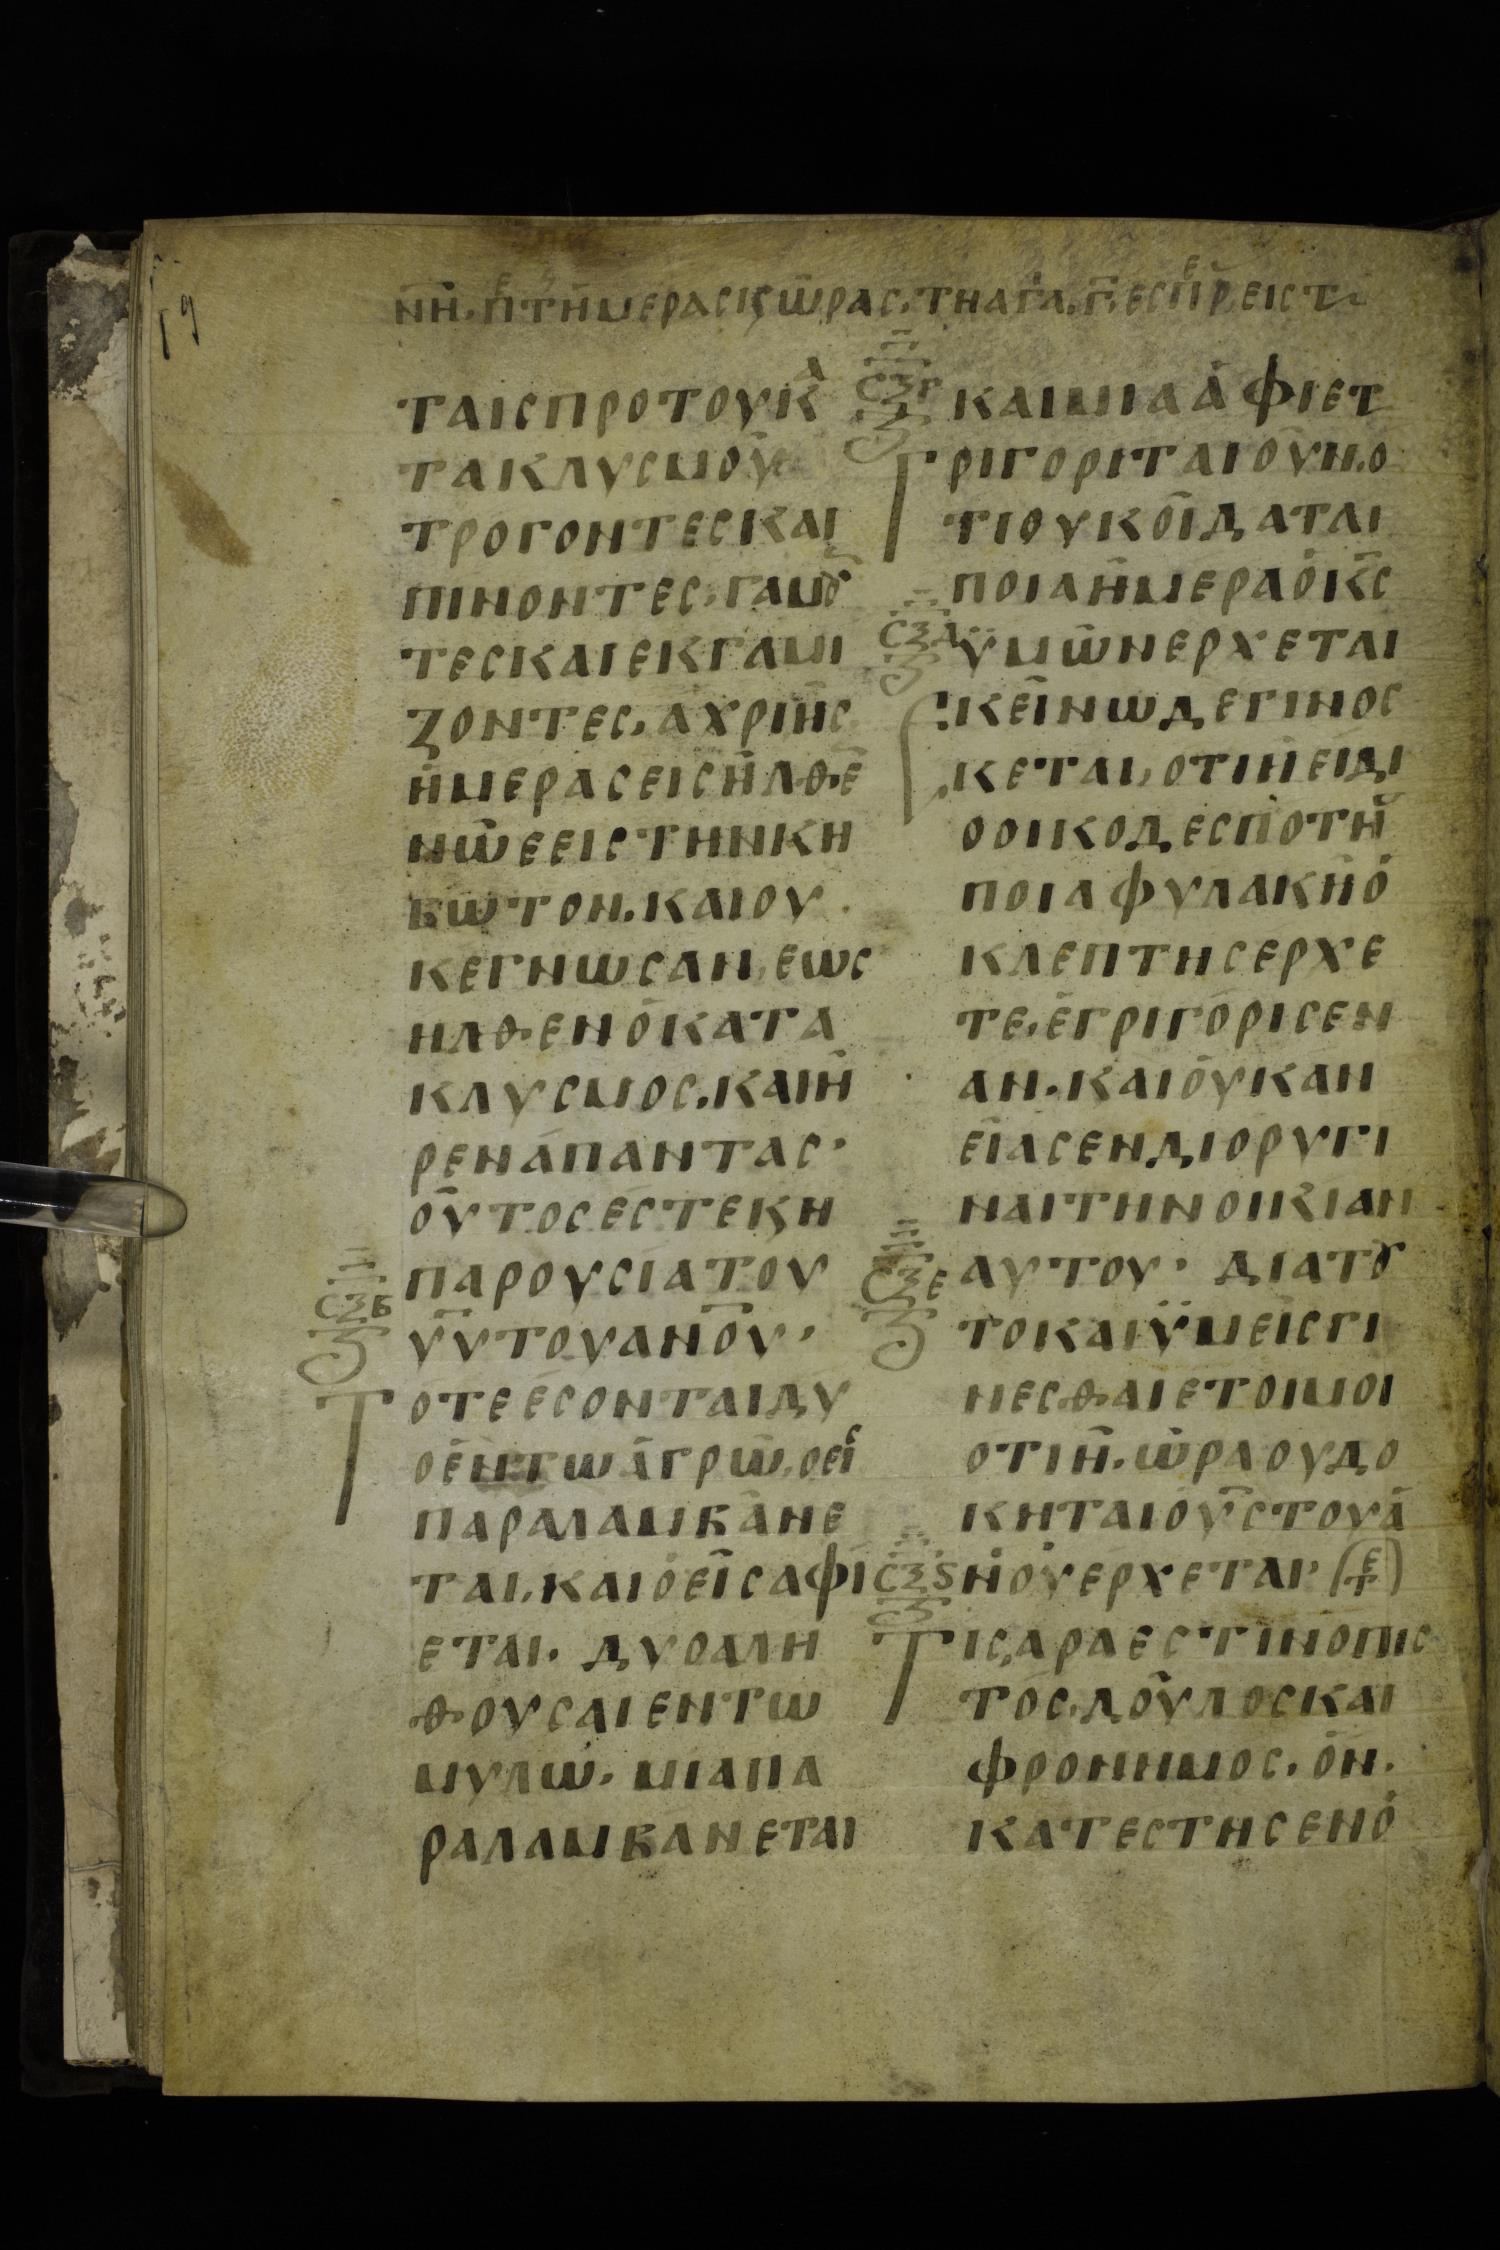 ΝΗ. ΠΕ ΤΗ ΗΜΕΡΑ Ϛ ΩΡΑΣ. ΤΗ ΑΓΑ. Γ. ΕΣΠΕΡ ΕΙΣ Τ
ΤΑΙϹΠΡΟΤΟΥΚᾹ
ΤΑΚΛΥϹΜΟΥ
ΤΡΟΓΟΝΤΕϹΚΑΙ
ΠΙΝΟΝΤΕϹ, ΓΑΜΟΥ
ΤΕϹΚΑΙΕΚΓΑΜΙ
ΖΟΝΤΕϹ, ΑΧΡΙΗϹ
ΗΜΕΡΑϹΕΙϹΗΛΘΕ
ΝΩΕΕΙϹΤΗΝΚΗ
ΒΩΤΟΝ. ΚΑΙΟΥ
ΚΕΓΝΩϹΑΝ, ΕΩϹ
ΗΛΘΕΝΟΚΑΤΑ
ΚΛΥϹΜΟϹ. ΚΑΙΗ
ΡΕΝΑΠΑΝΤΑϹ·
ΟΥΤΟϹΕϹΤΕΚΗ
ΠΑΡΟΥϹΙΑΤΟΥ
ϹΞΒ
Ζ
ΥΥΤΟΥΑΝΟΥ·
ΤΟΤΕΕϹΟΝΤΑΙΔΥ
ΟΕΝΤΩΑΓΡΩ, ΟΕΙϹ
ΠΑΡΑΛΑΜΒΑΝΕ
ΤΑΙ, ΚΑΙΟΕΙϹΑΦΙ
ΕΤΑΙ. ΔΥΟΑΛΗ
ΘΟΥϹΑΙΕΝΤΩ
ΜΥΛΩ. ΜΙΑΠΑ
ΡΑΛΑΜΒΑΝΕΤΑΙ
ϹΞΓ
ΚΑΙΜΙΑΑΦΙΕΤ
ΓΡΙΓΟΡΙΤΑΙΟΥΝ. Ο
ΤΙΟΥΚΟΙΔΑΤΑΙ
ΠΟΙΑΗΜΕΡΑΟΚϹ
ϹΞΔ
ΥΜΩΝΕΡΧΕΤΑΙ
ΕΚΕΙΝΩΔΕΓΙΝΟϹ
ΚΕΤΑΙ, ΟΤΙΗΕΙΔΙ
ΟΟΙΚΟΔΕϹΠΟΤΗϹ
ΠΟΙΑΦΥΛΑΚΗΟ
ΚΛΕΠΤΗϹΕΡΧΕ
ΤΕ, ΕΓΡΙΓΟΡΙϹΕΝ
ΑΝ. ΚΑΙΟΥΚΑΝ
ΕΙΑϹΕΝΔΙΟΡΥΓΙ
ΝΑΙΤΗΝΟΙΚΙΑΝ
ϹΞΕ
ΑΥΤΟΥ· ΔΙΑΤΟΥ
ΤΟΚΑΙΫΜΕΙϹΓΙ
ΝΕϹΘΑΙΕΤΟΙΜΟΙ
ΟΤΙΗ. ΩΡΑΟΥΔΟ
ΚΗΤΑΙΟΥϹΤΟΥΑ
ϹΞϚ
ΝΟΥΕΡΧΕΤΑΙ· (ΤΕ)
ΤΙϹΑΡΑΕϹΤΙΝΟΠΙϹ
ΤΟϹ, ΔΟΥΛΟϹΚΑΙ
ΦΡΟΝΗΜΟϹ. ΟΝ.
ΚΑΤΕϹΤΗϹΕΝΟ